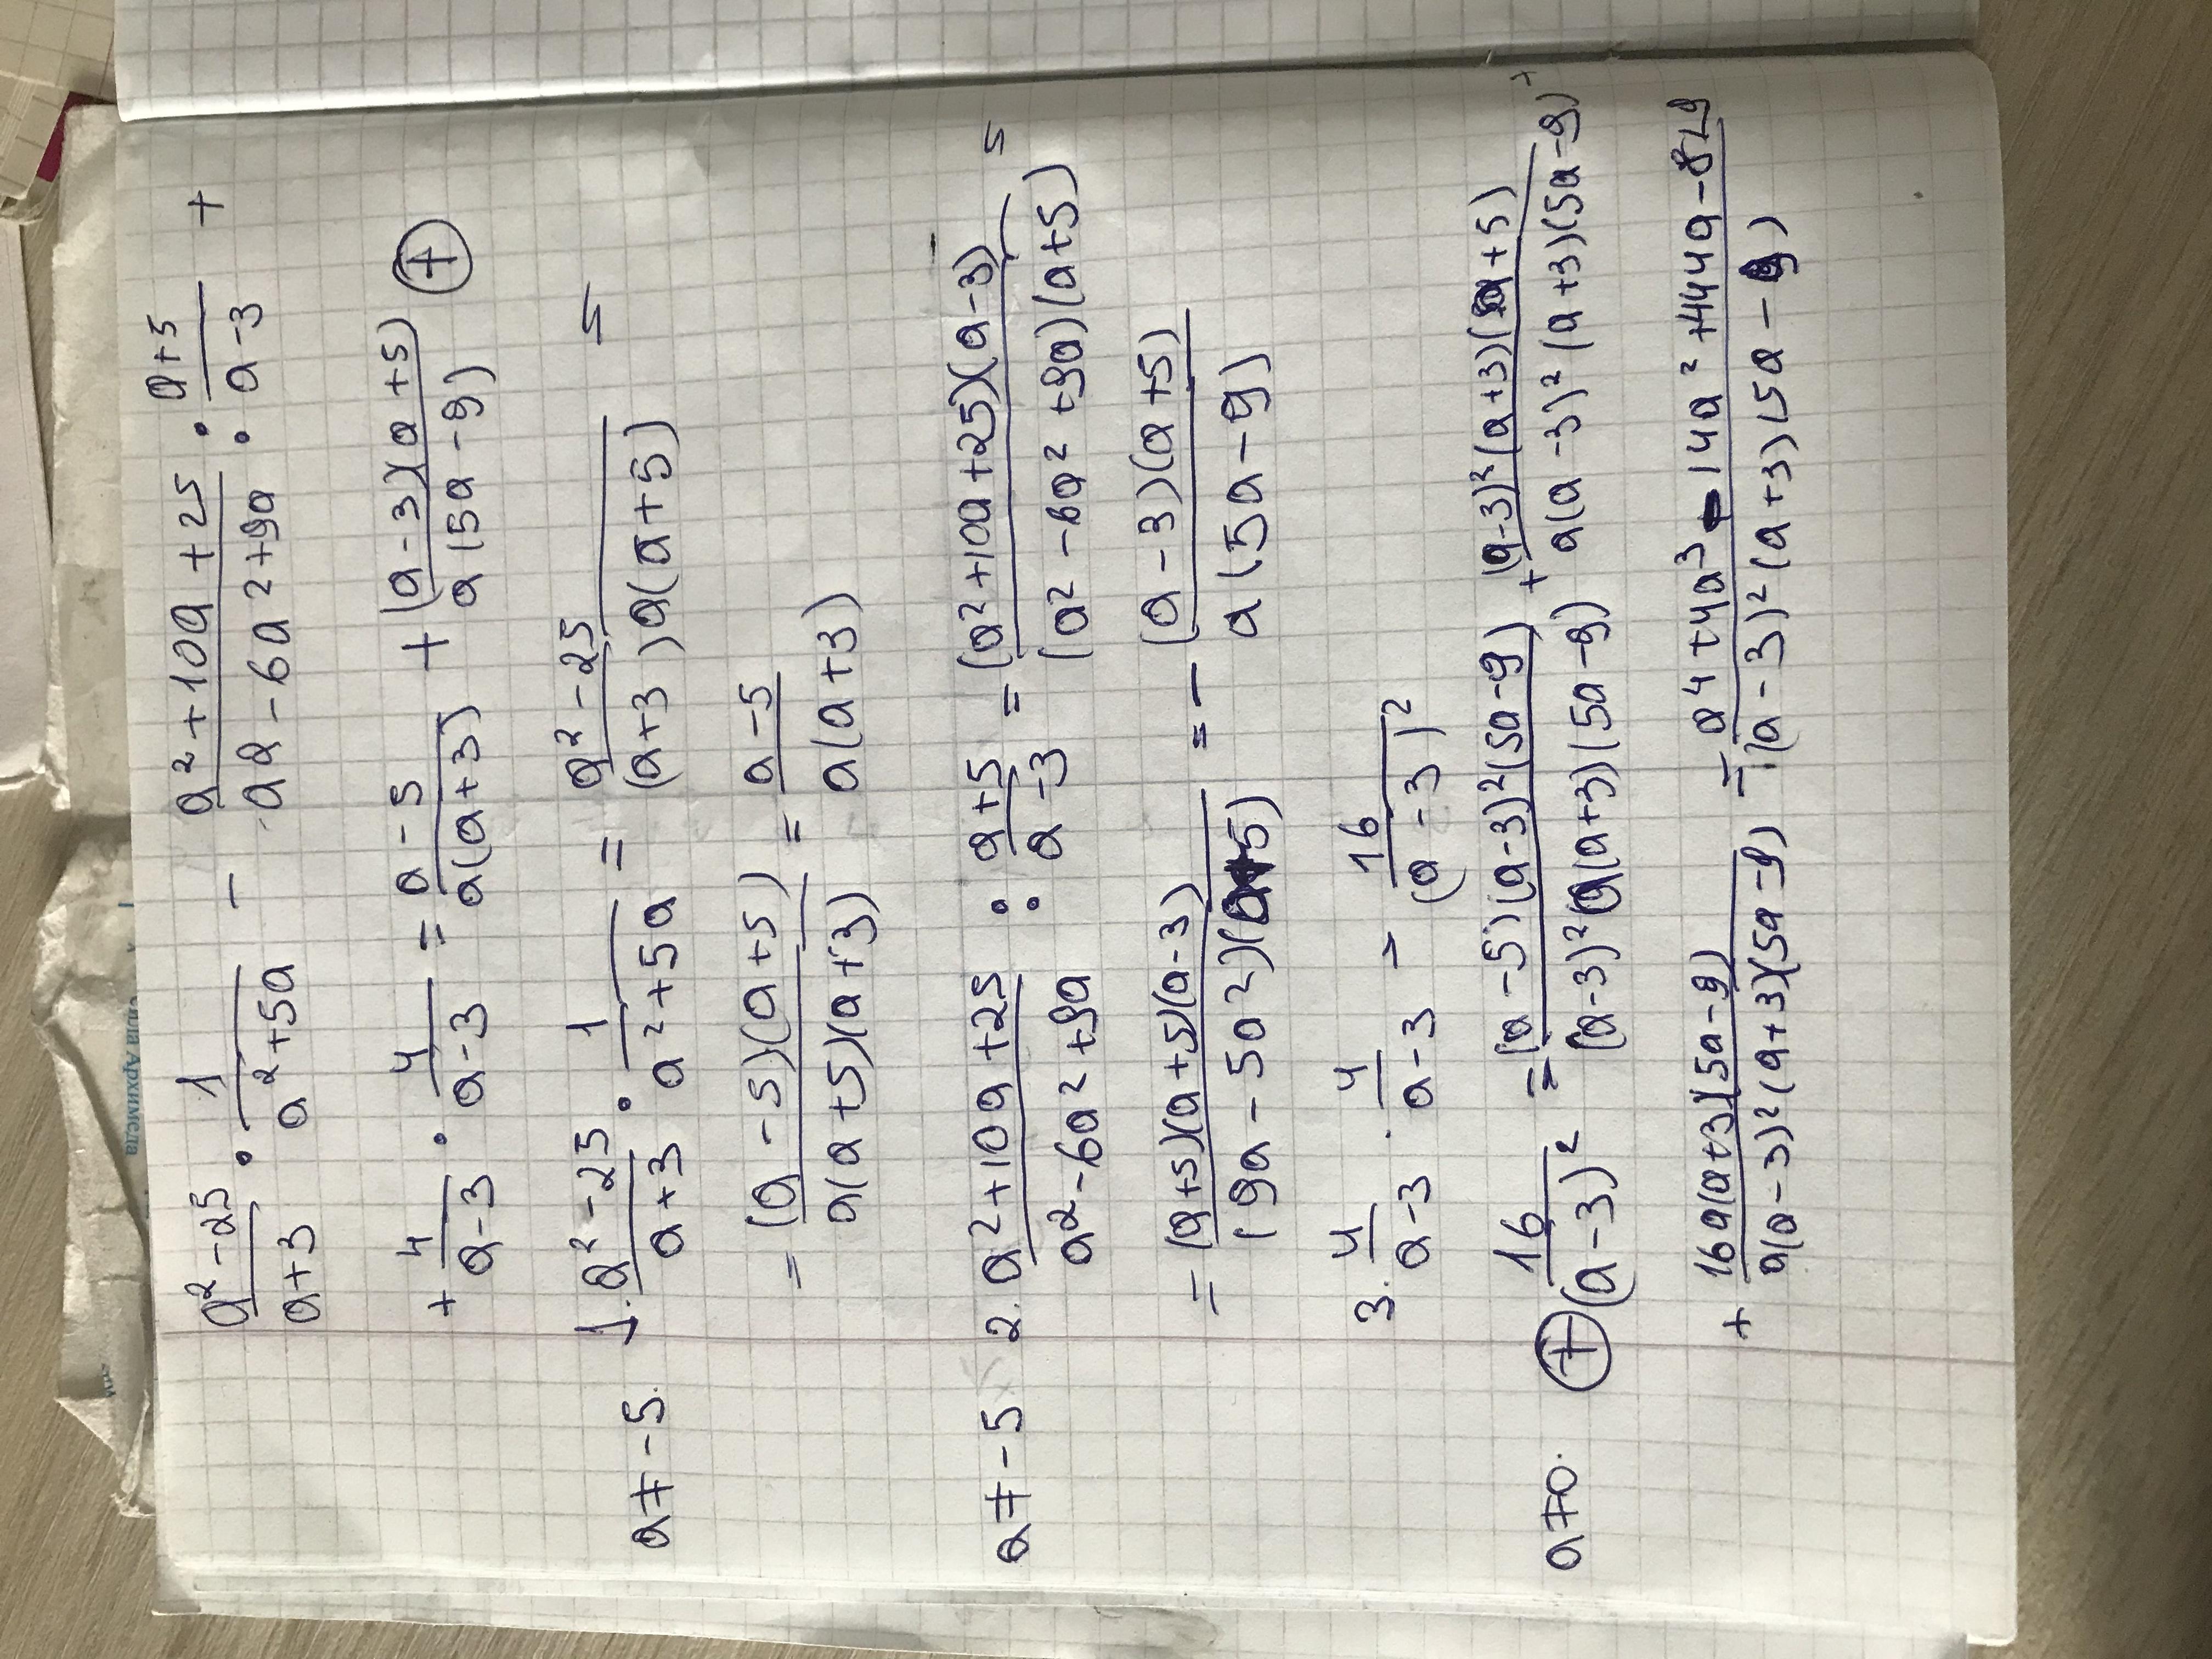 a²-25/a+3 · 1/a²+5a - a²+10a+25/a2-6a²+9a : a+5/a-3 +
+ 4/a-3 · 4/a-3 = a-5/a(a+3) + (a-3)(a+5)/a(5a-9) (+)
a≠-5. 1. a²-25/a+3 · 1/a²+5a = a²-25/(a+3)a(a+5) =
= (a-5)(a+5)/a(a+5)(a+3) = a-5/a(a+3)
a≠-5 2. a²+10a+25/a²-6a²+9a : a+5/a-3 = (a²+10a+25)(a-3)/(a²-6a²+9a)(a+5) =
= (a+5)(a+5)(a-3)/(9a-5a²)(a+5) = - (a-3)(a+5)/a(5a-9)
3. 4/a-3 · 4/a-3 = 16/(a-3)²
a≠0. (+) 16/(a-3)² = (a-5)(a-3)²(5a-9)/(a-3)²a(a+3)(5a-9) + (a-3)³(a+3)(a+5)/a(a-3)²(a+3)(5a-9) +
+ 16a(a+3)(5a-9)/a(a-3)²(a+3)(5a-9) = a4+4a³-14a²+444a-879/(a-3)²(a+3)(5a-9)
Архимеда